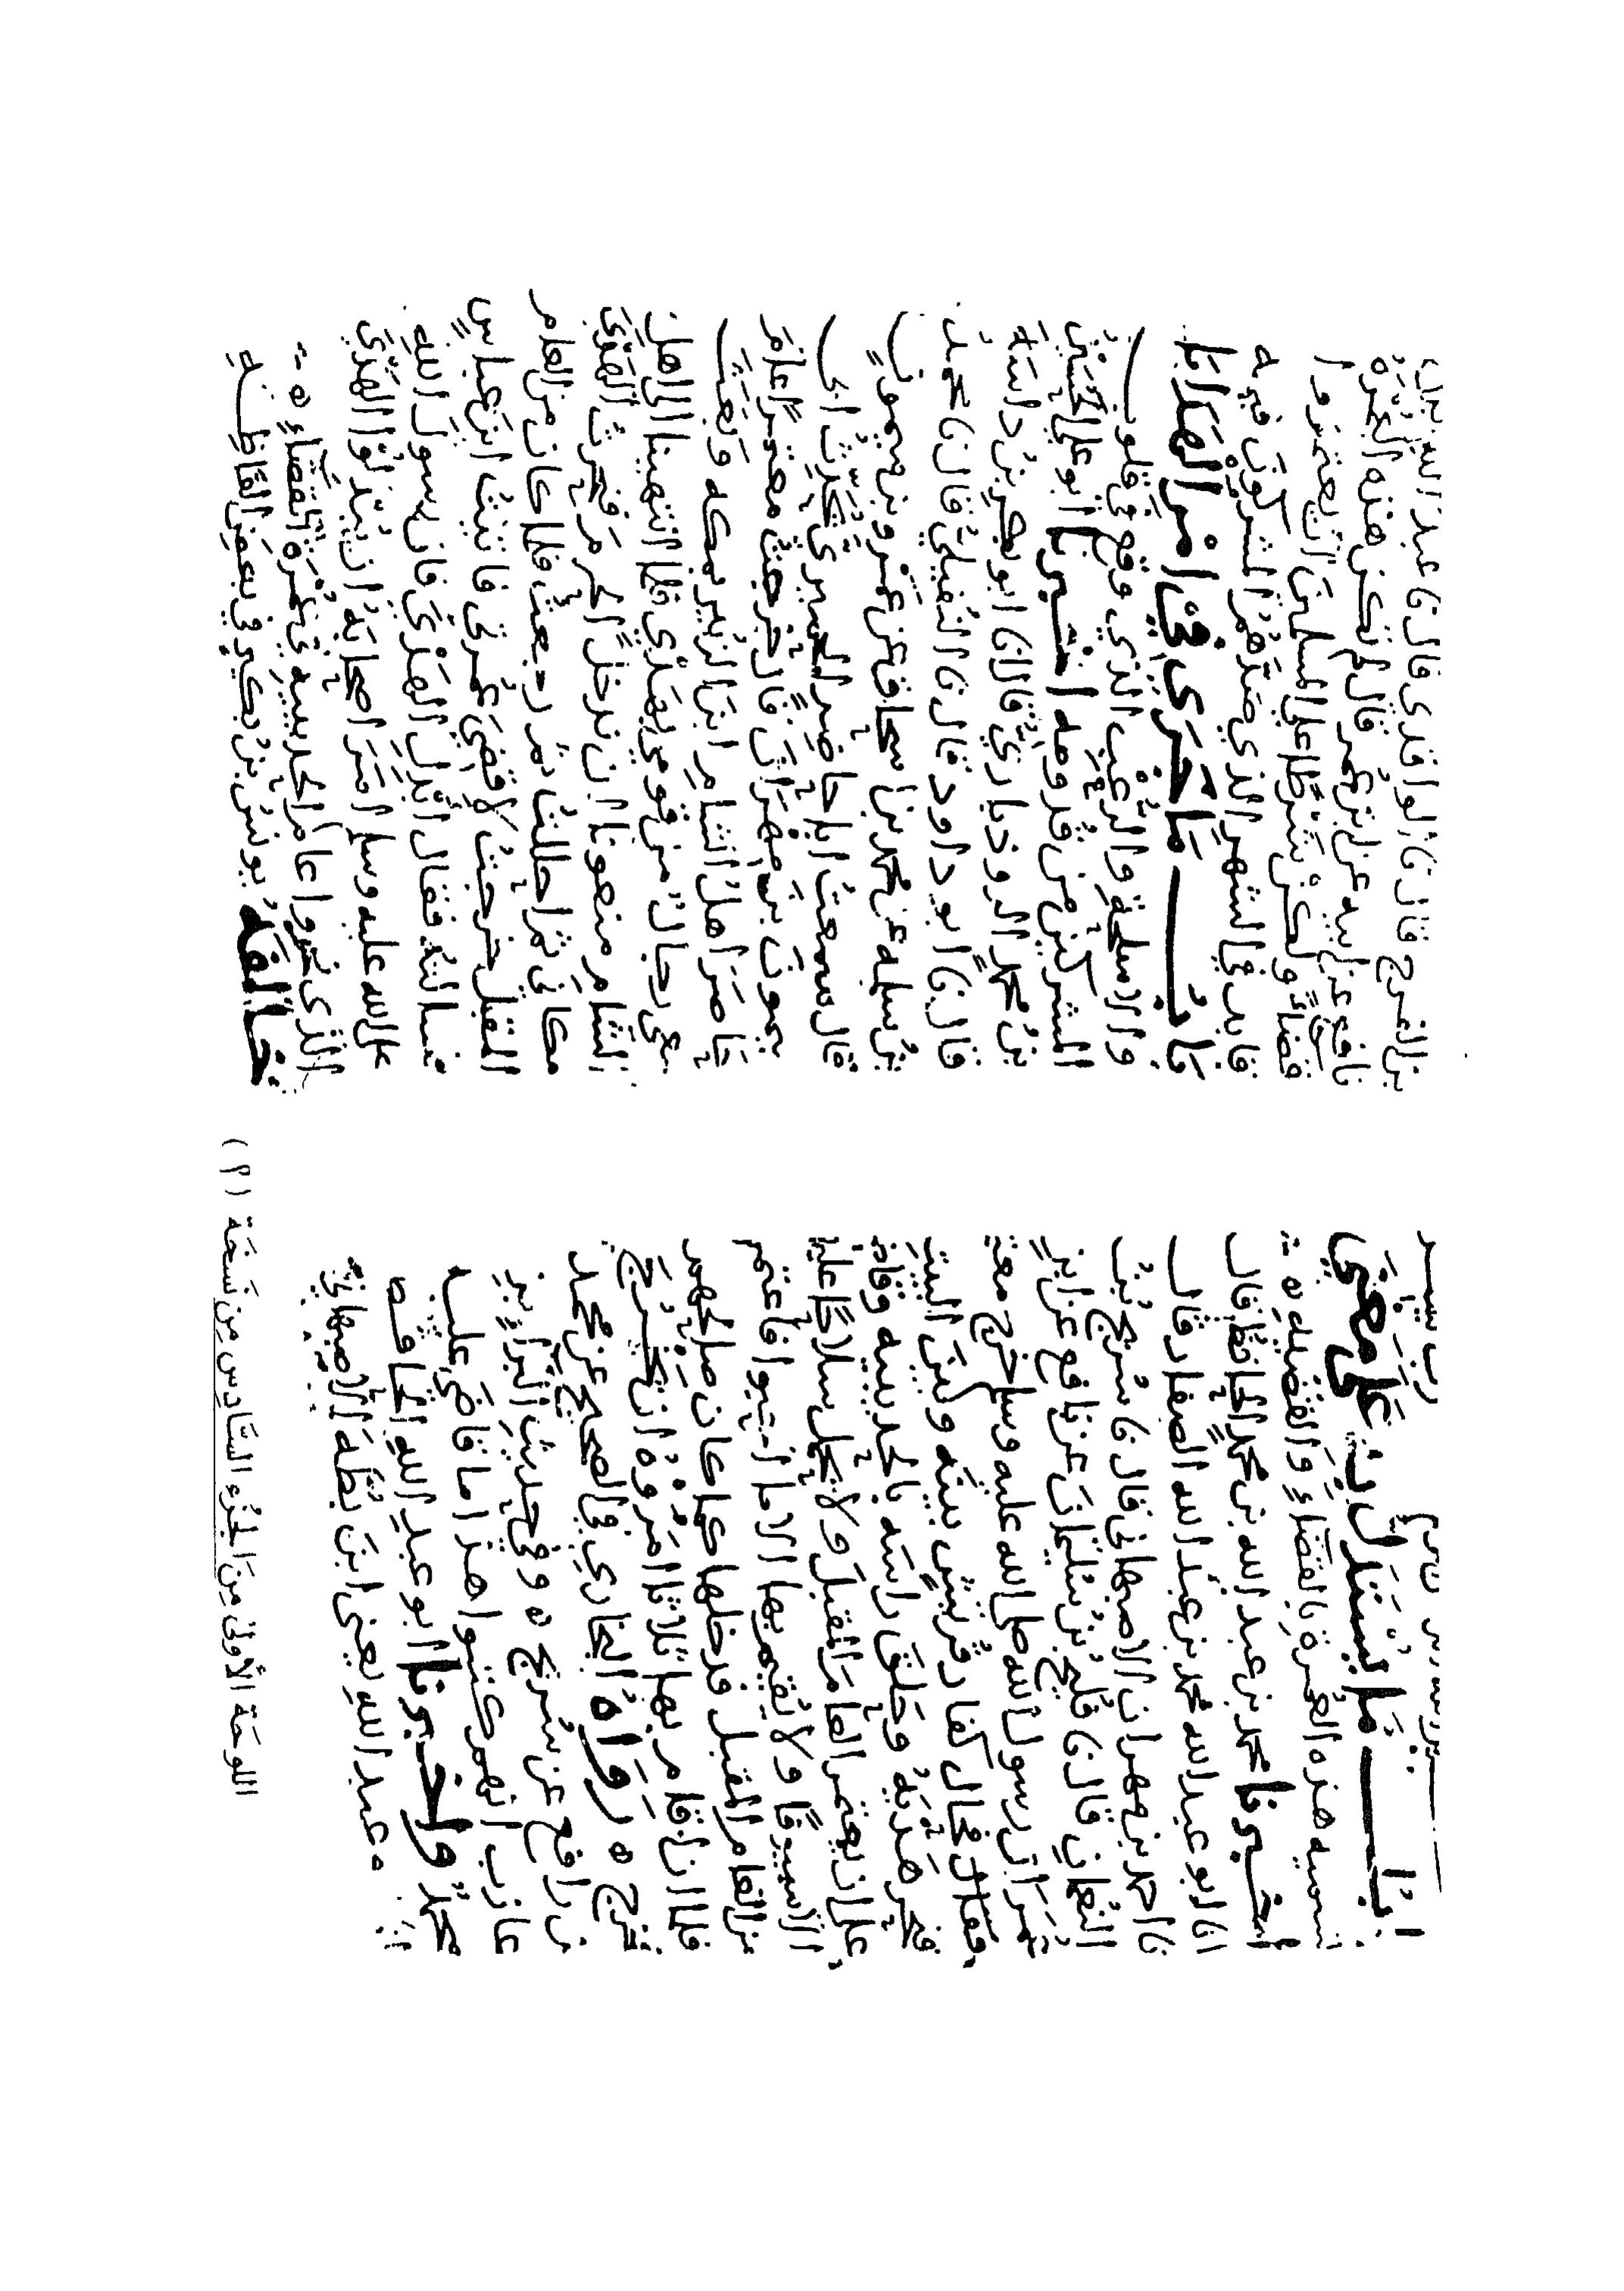 باب ما يستدل به على معنى
تسميه هذه العمرة بالقضاء والقضيه ه
أخبرنا محمد بن عبد الله بن محمد الحافظ قال
انا ابو عبد الله محمد بن عبد الله الصفار قال
نا احمد بن مهران الاصبهاني قال نا سريج بن
النعمان قال نا فليح بن سليمان عن نافع عن ابن
عمر ان رسول الله صلى الله عليه وسلم خرج معتمرا
فحال كفار قريش بينه وبين البيت
فنحر هديه وحلق راسه بالحديبيه
على ان يعتمر العام المقبل ولا يحمل سلاحا
الا سيوفا ولا يقيم بها الا ما احبوا فاعتمر
من العام المقبل فدخلها كما كان صالحهم
فلما ان اقام بها ثلاثا امروه ان يخرج
فخرج ه رواه البخاري في الصحيح عن محمد
بن رافع عن سريج ه وفي حديث البراء بن
عازب انهم كتبوا هذا ما قاضى عليه
محمد واخبرنا ابو عبد الله الحافظ
عبد الله يعني ابن بطة الاصبهاني
بن الفرج قال نا الواقدي قال نا عبد الله بن
نافع عن ابيه عن ابن عمر قال لم تكن هذه العمرة
قضاء ولكن شرطا على المسلمين ان يعتمروا
قابل في الشهر الذي صدهم المشركون فيه
باب ما جرى في امر الهدايا
والاسلحة والرعب الذي وقع في قلوب
المشركين من قدومه اخبرنا ابو علي الحسين
بن محمد الروذباري قال انا ابو بكر بن داسة
قال نا ابو داود قال نا النفيلي قال نا محمد
بن سلمه عن محمد بن اسحاق عن عمرو بن ميمون
قال سمعت ابا حاضر الحميري يحدث ابي
ميمون بن مهران قال خرجت معتمرا عام
حاصر اهل الشام ابن الزبير بمكه وبعث
معي رجال من قومي بهدي فلما انتهينا الى اهل
الشام منعونا ان ندخل الحرم فنحرت الهدي
مكاني ثم احللت ثم رجعت فلما كان من العام
المقبل خرجت لاقضي عمرتي فاتيت ابن عباس
فسالته فقال ابدل الهدي فان رسول الله
صلى الله عليه وسلم امر اصحابه ان يبدلوا الهدي
الذي نحروا عام الحديبيه في عمرة القضاء ه
خالفه يونس بن بكير في بعض الفاظه
اللوحة الأولى من الجزء السادس من نسخة (م)